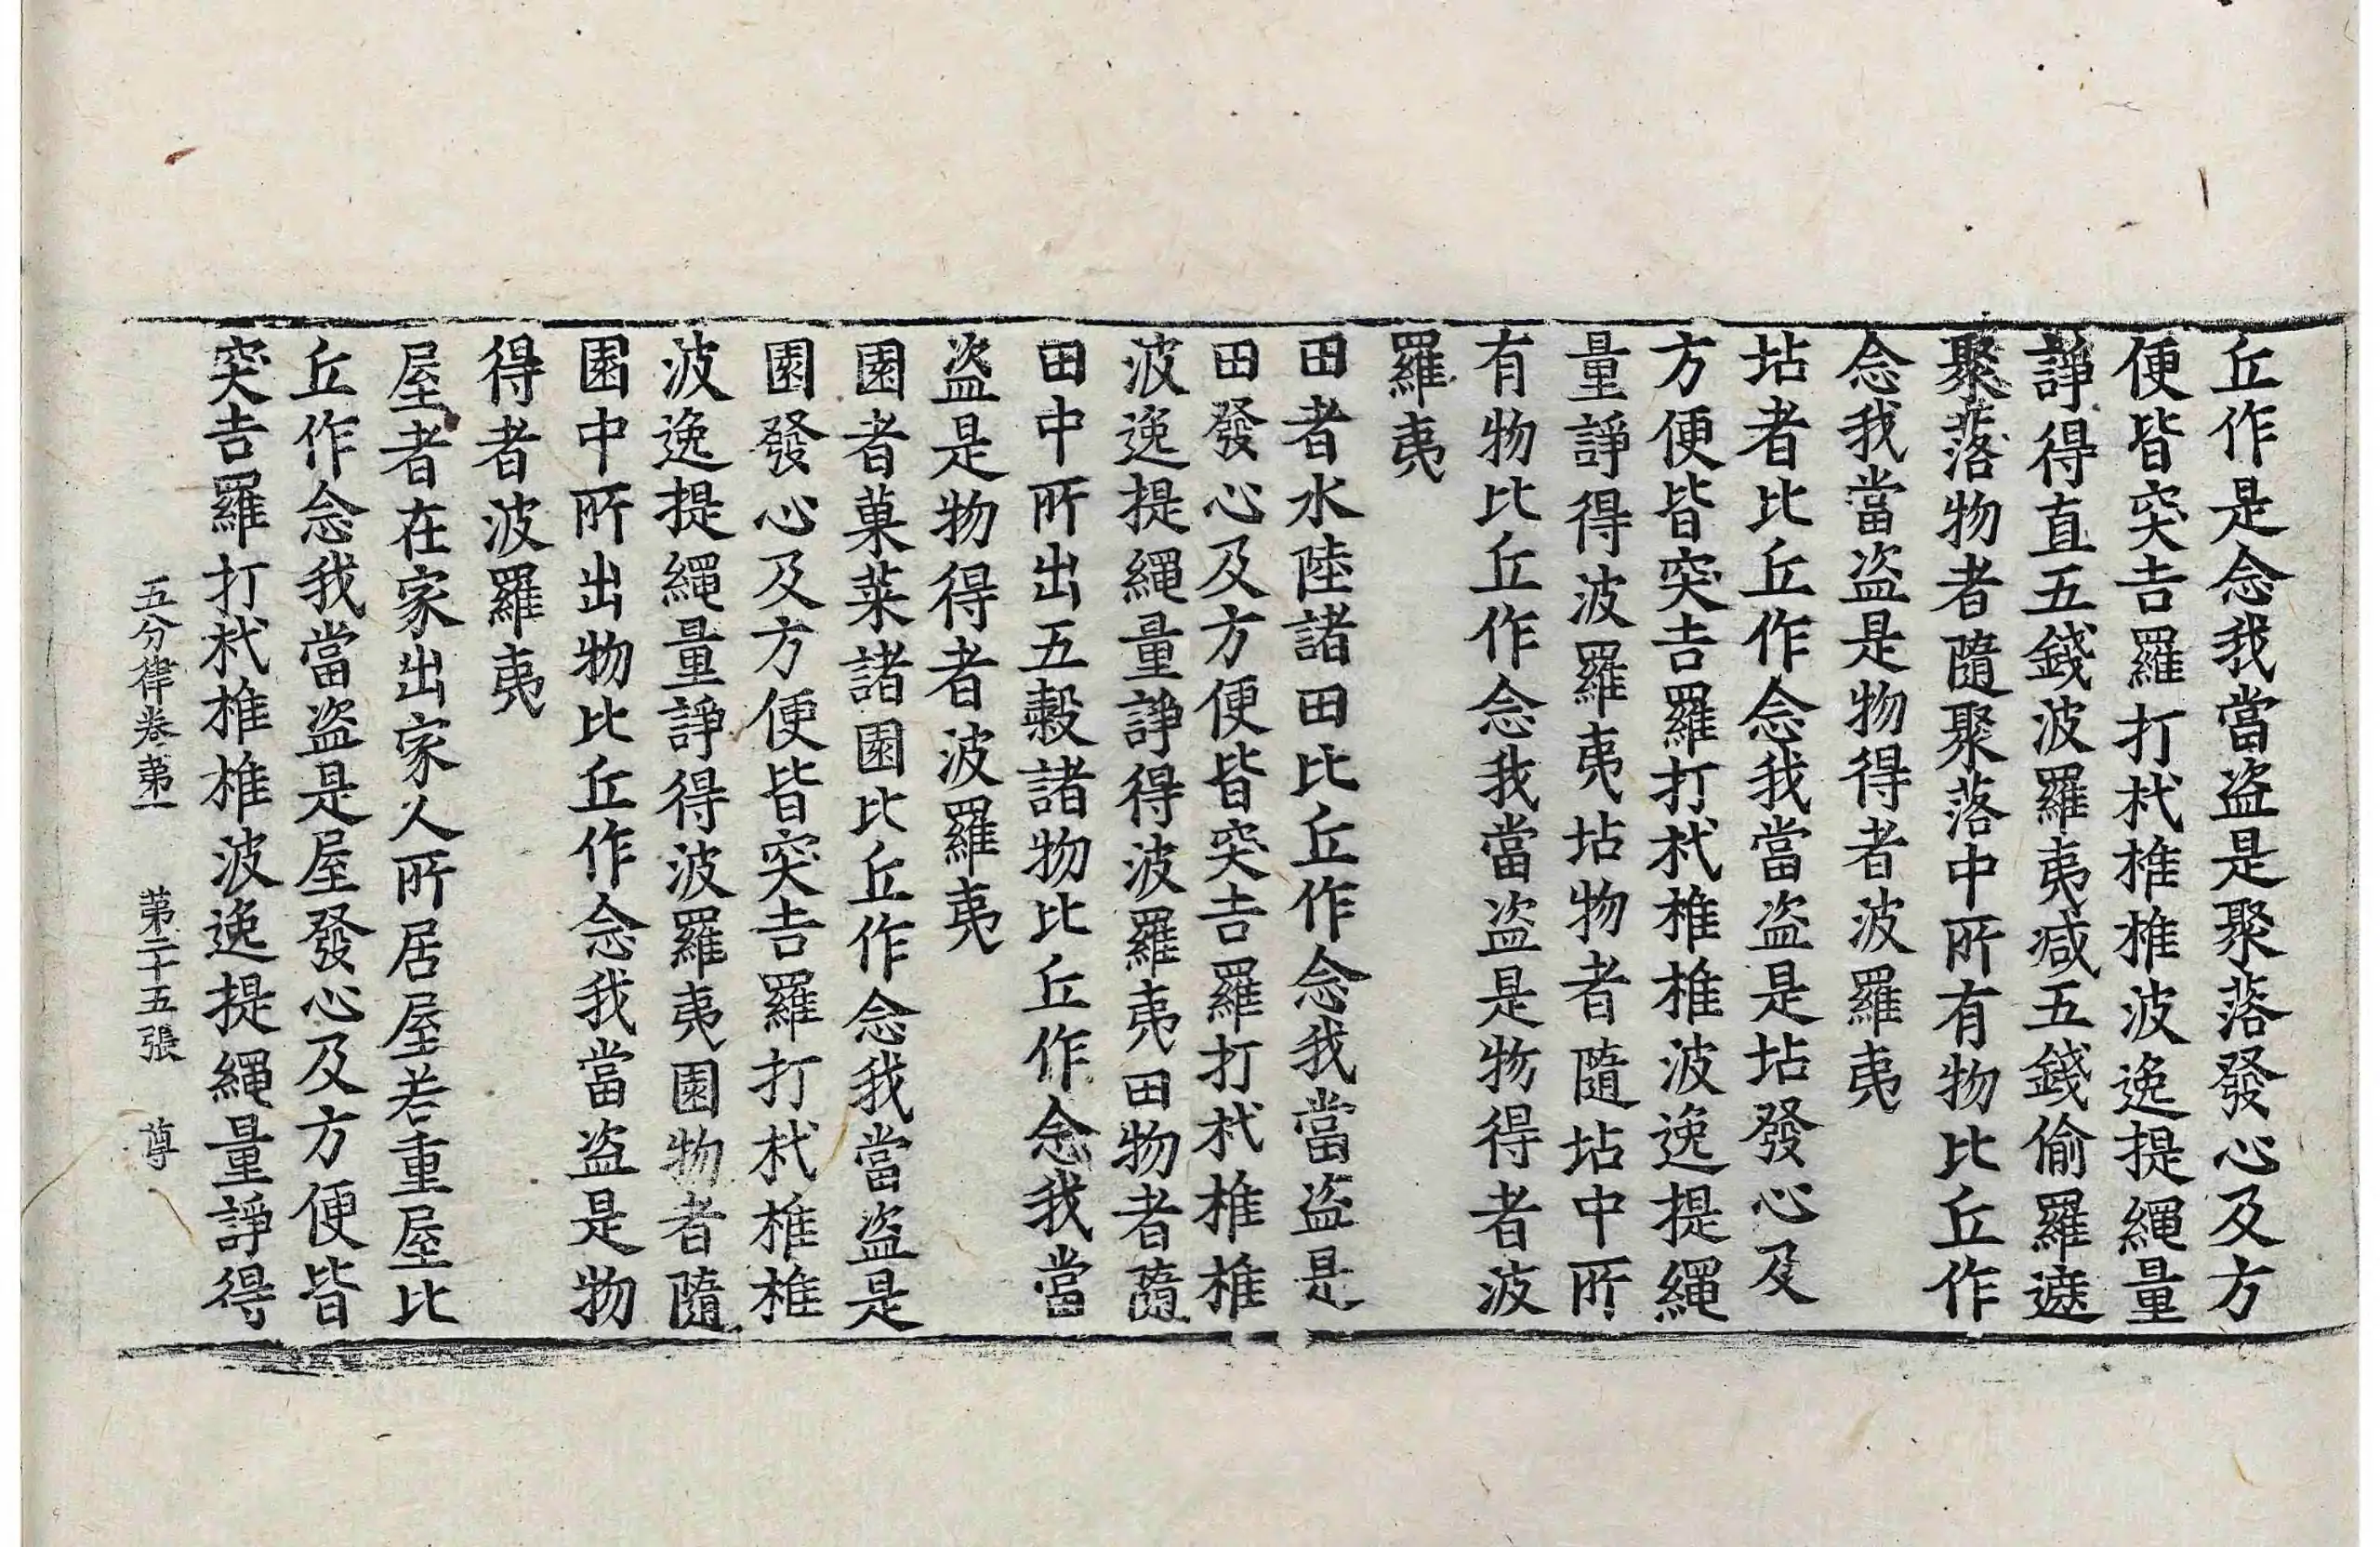 丘作是念我當盗是聚落發心及方
便皆突吉羅打杙椎椎波逸提繩量
諍得直五錢波羅夷减五錢偷羅遮
聚落物者隨聚落中所有物比丘作
念我當盗是物得者波羅夷
坫者比丘作念我當盗是坫發心及
方便皆突吉羅打杙椎椎波逸提繩
量諍得波羅夷坫物者隨坫中所
有物比丘作念我當盗是物得者波
羅夷
田者水陸諸田比丘作念我當盗是
田發心及方便皆突吉羅打杙椎椎
波逸提繩量諍得波羅夷田物者隨
田中所出五穀諸物比丘作念我當
盗是物得者波羅夷
園者菓菜諸園比丘作念我當盗是
園發心及方便皆突吉羅打杙椎椎
波逸提繩量諍得波羅夷園物者隨
園中所出物比丘作念我當盗是物
得者波羅夷
屋者在家出家人所居屋若重屋比
丘作念我當盗是屋發心及方便皆
突吉羅打杙椎椎波逸提繩量諍得
五分律卷第一 第二十五張 尊